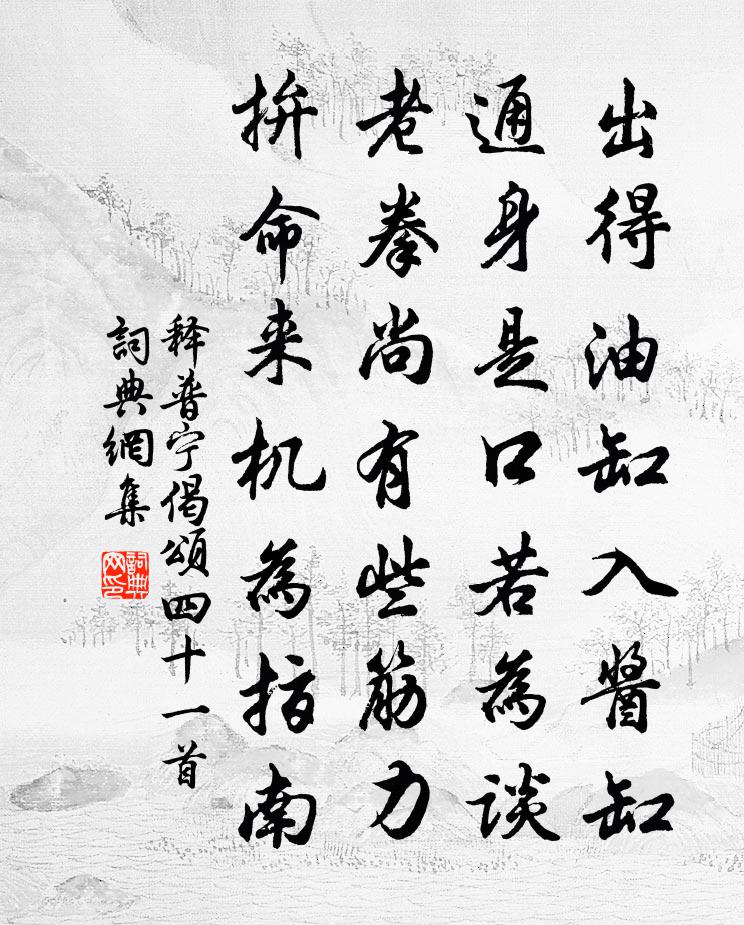 出得油缸入醬缸
通身是口若為談
老拳尚有些筋力
拚命来机為指南
释普宁偈頌四十一首
詞典網集
詞典网印